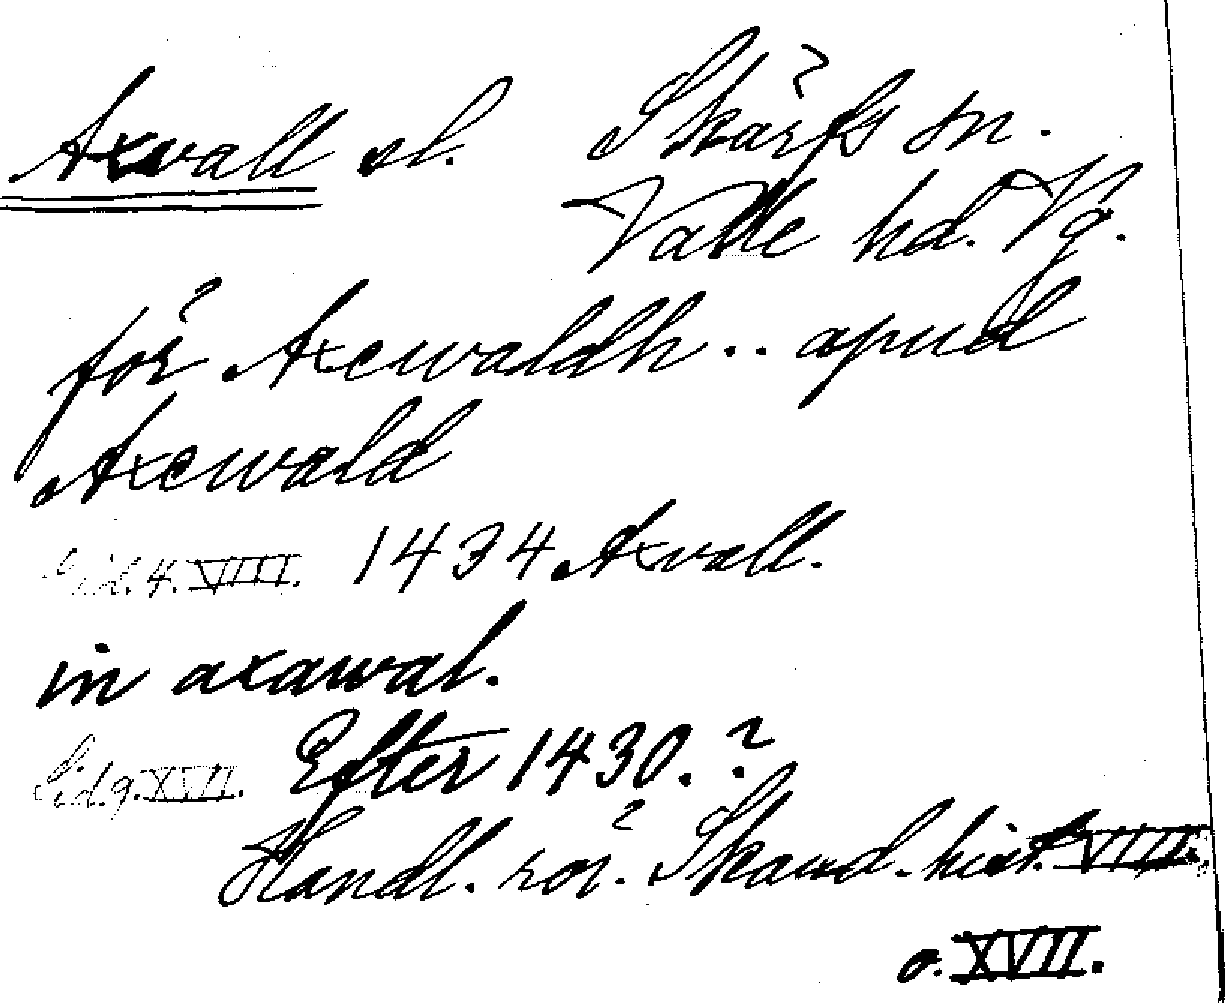 Axvall sl. Skärfs sn.
Valle hd. Vg.
för Axewaldh .. apud
Axewald
Sid. 4. VIII. 1434 Axvall.
in axawal.
Sid. 9. XVII. Efter 1430.?
Handl. rör. Skand. hist. VIII.
o. XVII.